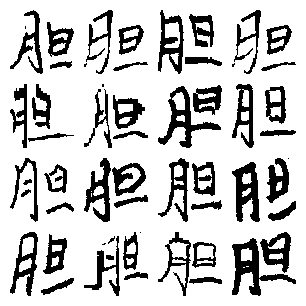 胆胆胆胆
胆胆胆胆
胆胆胆胆
胆胆胆胆